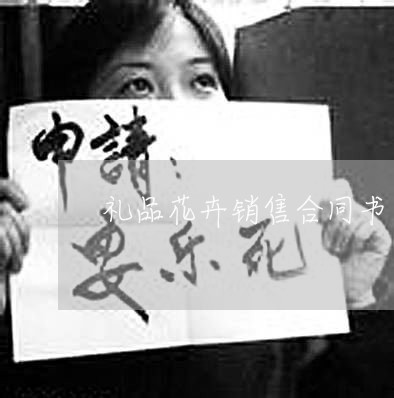 申請：
礼品花卉销售合同书
要乐死